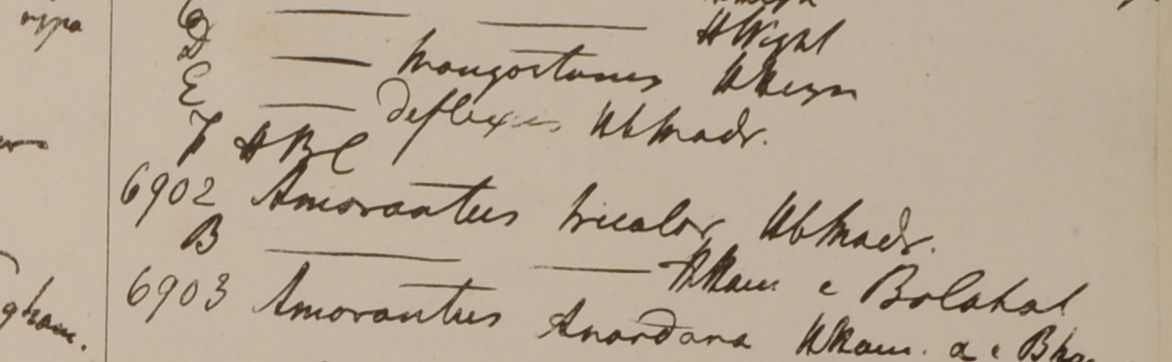 ripa
C ——— ——— HWight
D ——— mangostanus HHeyn
E ——— deflexus HbMadr.
F HBC
6902 Amarantus tricolor HbMadr.
B ——— ——— HHam e Bolahat
6903 Amarantus Anardana HHam. a e Bha
gham.